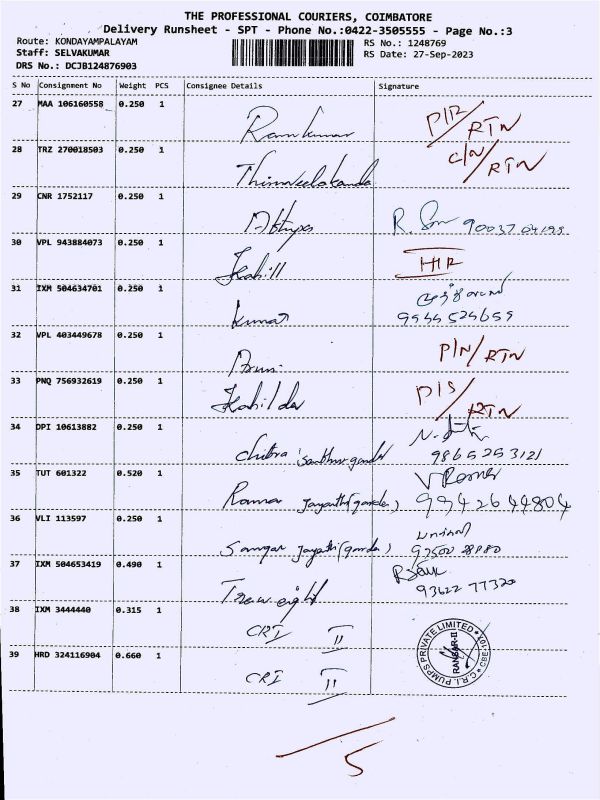 THE PROFESSIONAL COURIERS, COIMBATORE
Delivery Runsheet - SPT - Phone No.:0422-3505555 - Page No.:3
Route: KONDAYAMPALAYAM RS No.: 1248769
Staff: SELVAKUMAR RS Date: 27-Sep-2023
DRS No.: DCJB124876903
S No Consignment No Weight PCS Consignee Details Signature
27 MAA 106160558 0.250 1 Ramkumar P/R/ RTN
28 TRZ 270018503 0.250 1 C/N/ RTN
29 CNR 1752117 0.250 1 R.
30 VPL 943884073 0.250 1
31 IXM 504634701 0.250 1 Kumar
32 VPL 403449678 0.250 1 P/N/RTN
33 PNQ 756932619 0.250 1 P/S/ RTN
34 DPI 10613882 0.250 1 Chitra 9865253121
35 TUT 601322 0.520 1 9942644804
36 VLI 113597 0.250 1
37 IXM 504653419 0.490 1 93622 77320
38 IXM 3444440 0.315 1 CRI II
39 HRD 324116904 0.660 1 CRI II
C.R.I. PUMPS PRIVATE LIMITED
RANGAR-II
5